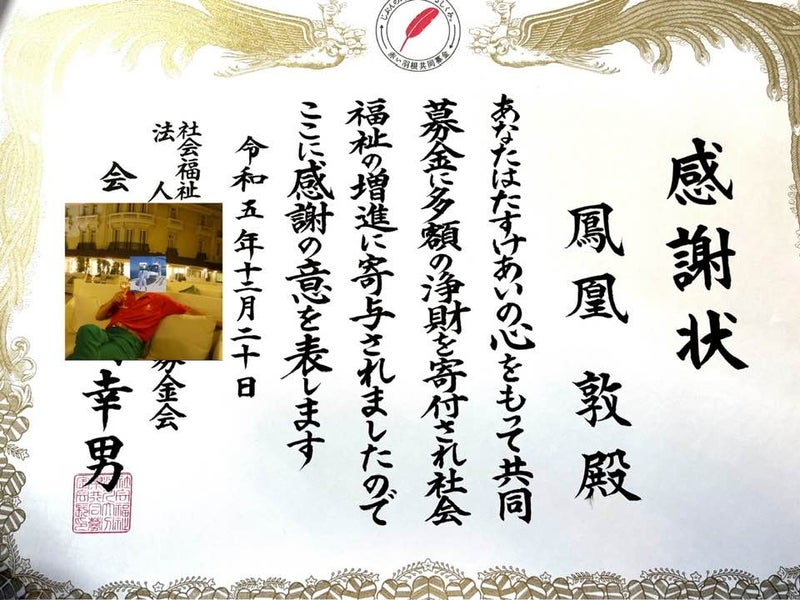 感謝状
鳳凰 敦 殿
あなたはたすけあいの心をもって共同
募金に多額の浄財を寄付され社会
福祉の増進に寄与されましたので
ここに感謝の意を表します
令和五年十二月二十日
社会福祉
法人
募金会
会
幸男
赤い羽根共同募金